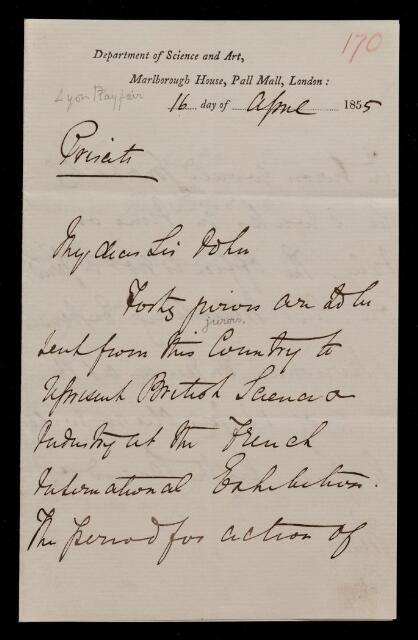 170
Department of Science and Art,
Marlborough House, Pall Mall, London:
Lyon Playfair
16 day of April 1855
Private
My dear Sir John
Forty jurors are to be
jurors.
sent from this Country to
represent British Science &
Industry at the French
International Exhibition.
The period for action of